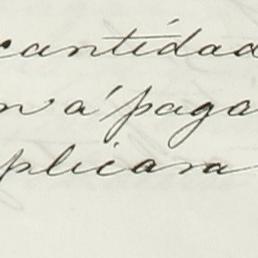 cantidad
n á paga
plicara